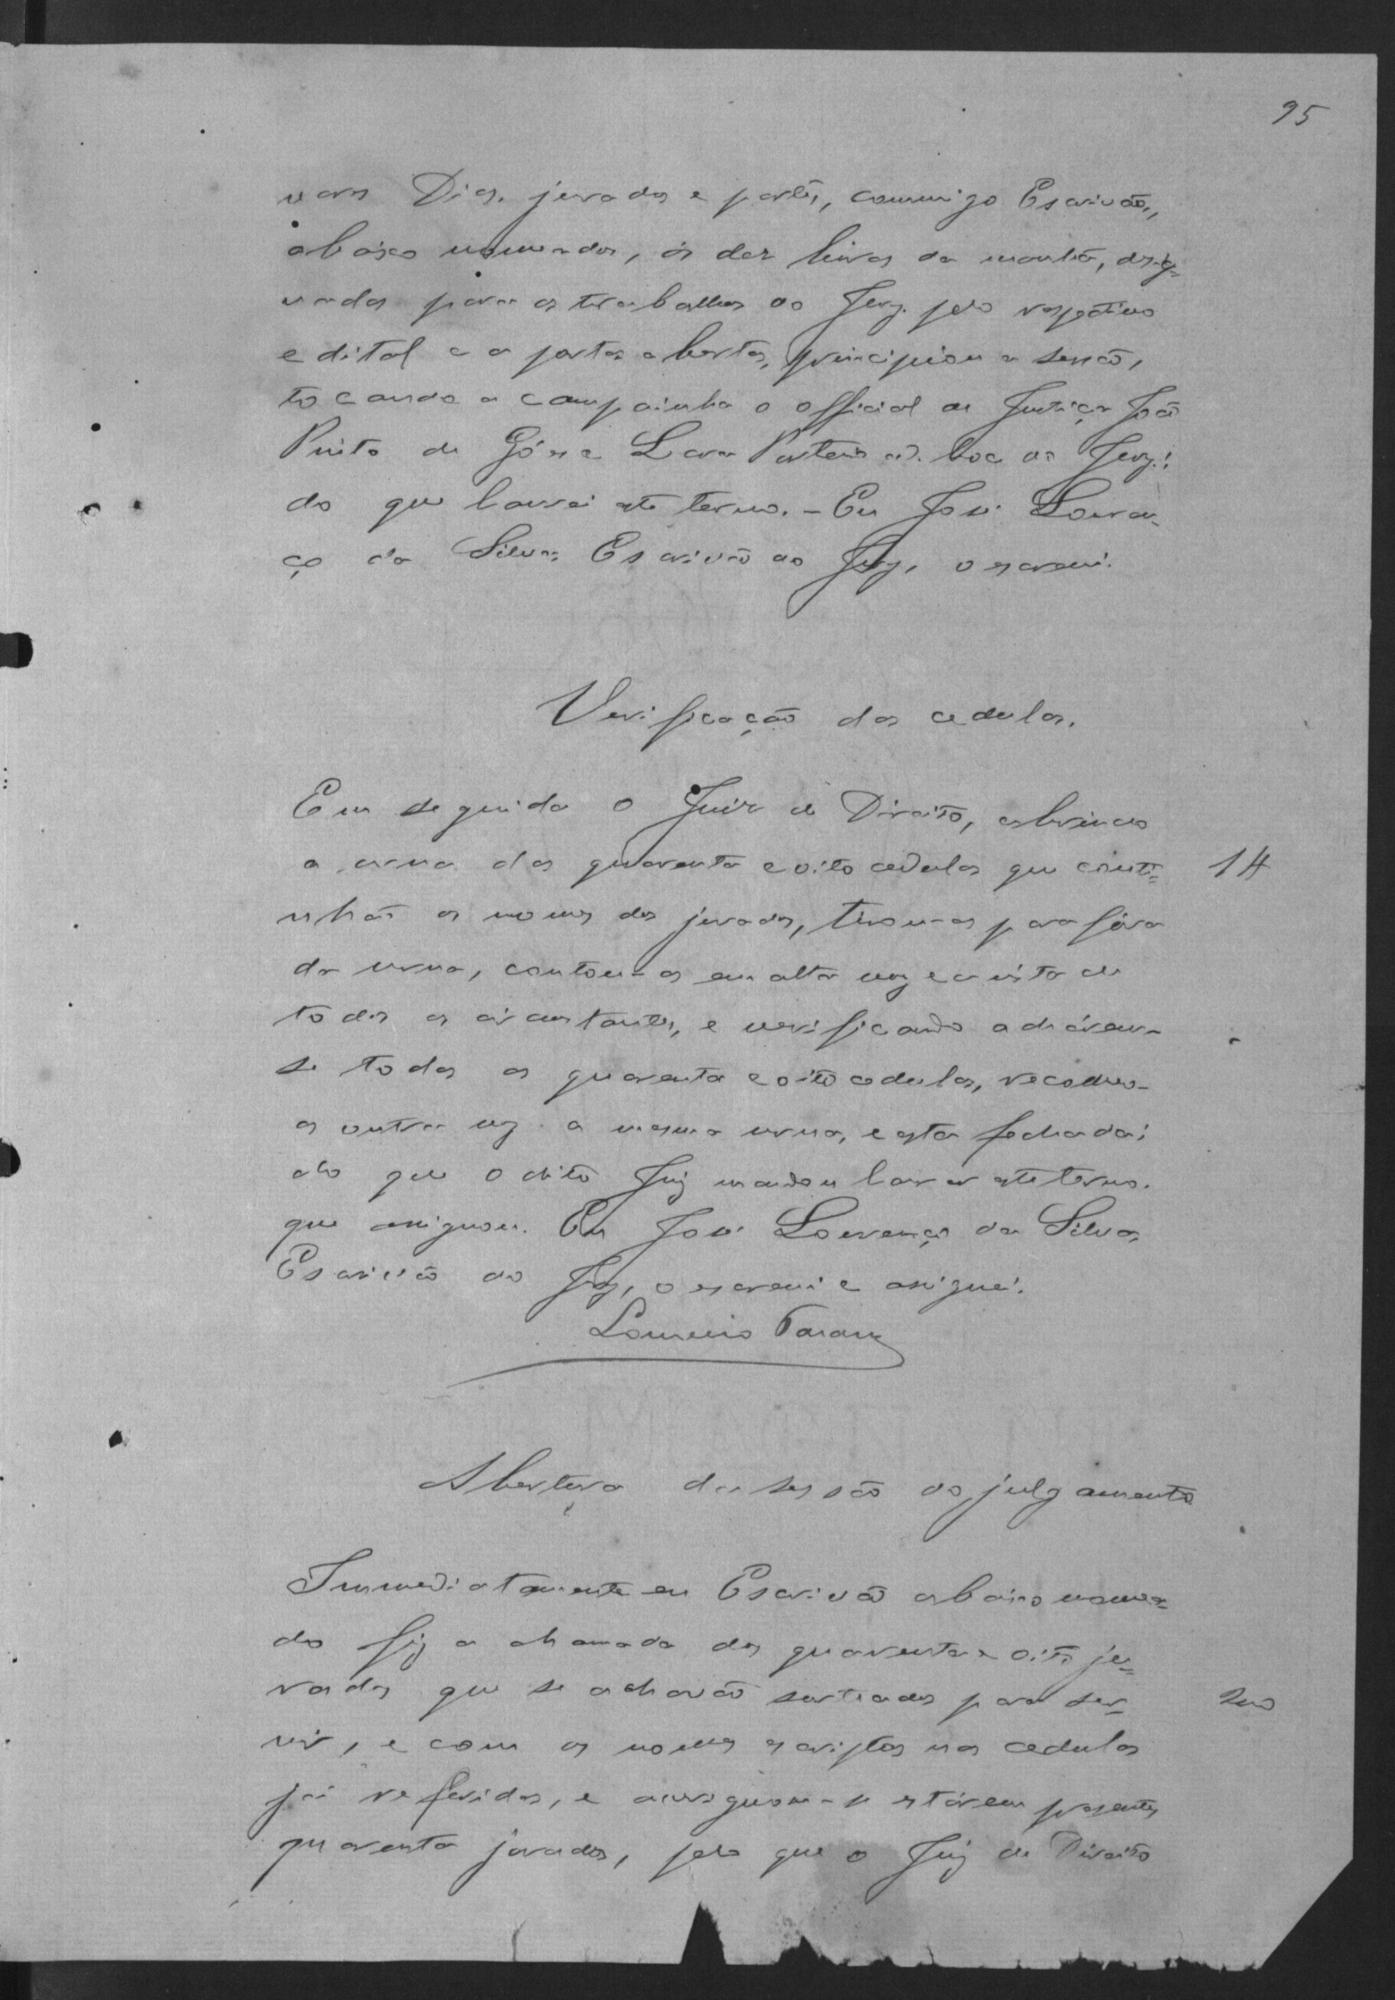 95
vares Dias, jurados e partes, commigo Escrivão,
abaixo nomeados, ás dez horas da manhã, desig-
nadas para os trabalhos do Jury pelo respectivo
edital e a portas abertas, principiou a sessão,
tocando a campainha o official de Justiça João
Pinto de Góes e Lara Porteiro ad. hoc do Jury;
do que lavrei este termo. - Eu José Louren-
ço da Silva, Escrivão do Jury, o escrevi.
Verificação das cedulas.
Em seguida o Juiz de Direito, abrindo
a urna das quarenta e oito cedulas que conti-
14
nhão os nomes dos jurados, tirou-as para fóra
da urna, contou-as em alta voz e a vista de
todos os circunstantes, e verificando acharem-
se todas as quarenta e oito cedulas, recolheu-
as outra vez a mesma urna, e esta fechada;
do que o dito Juiz mandou lavrar este termo.
que assignou. Eu José Lourenço da Silva,
Escrivão do Jury, o escrevi e assignei.
Abertura da sessão do julgamento
Immediatamente eu Escrivão abaixo nomea-
do fiz a chamada dos quarenta e oito ju-
rados que se achavão sorteados para ser-
vir, e com os nomes escriptos nas cedulas
já referidas, e averiguou-se estárem presentes
quarenta jurados, pelo que o Juiz de Direito